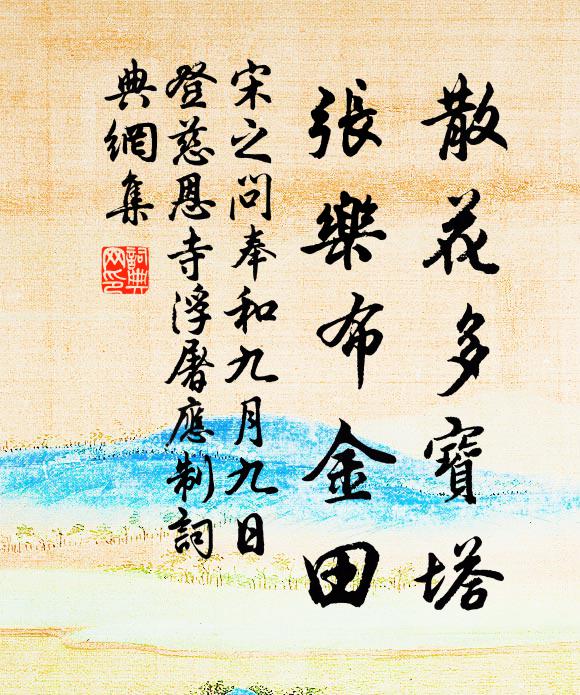 散花多寶塔
張樂布金田
宋之問奉和九月九日
登慈恩寺浮屠應制詞
典網集
詞典
网印